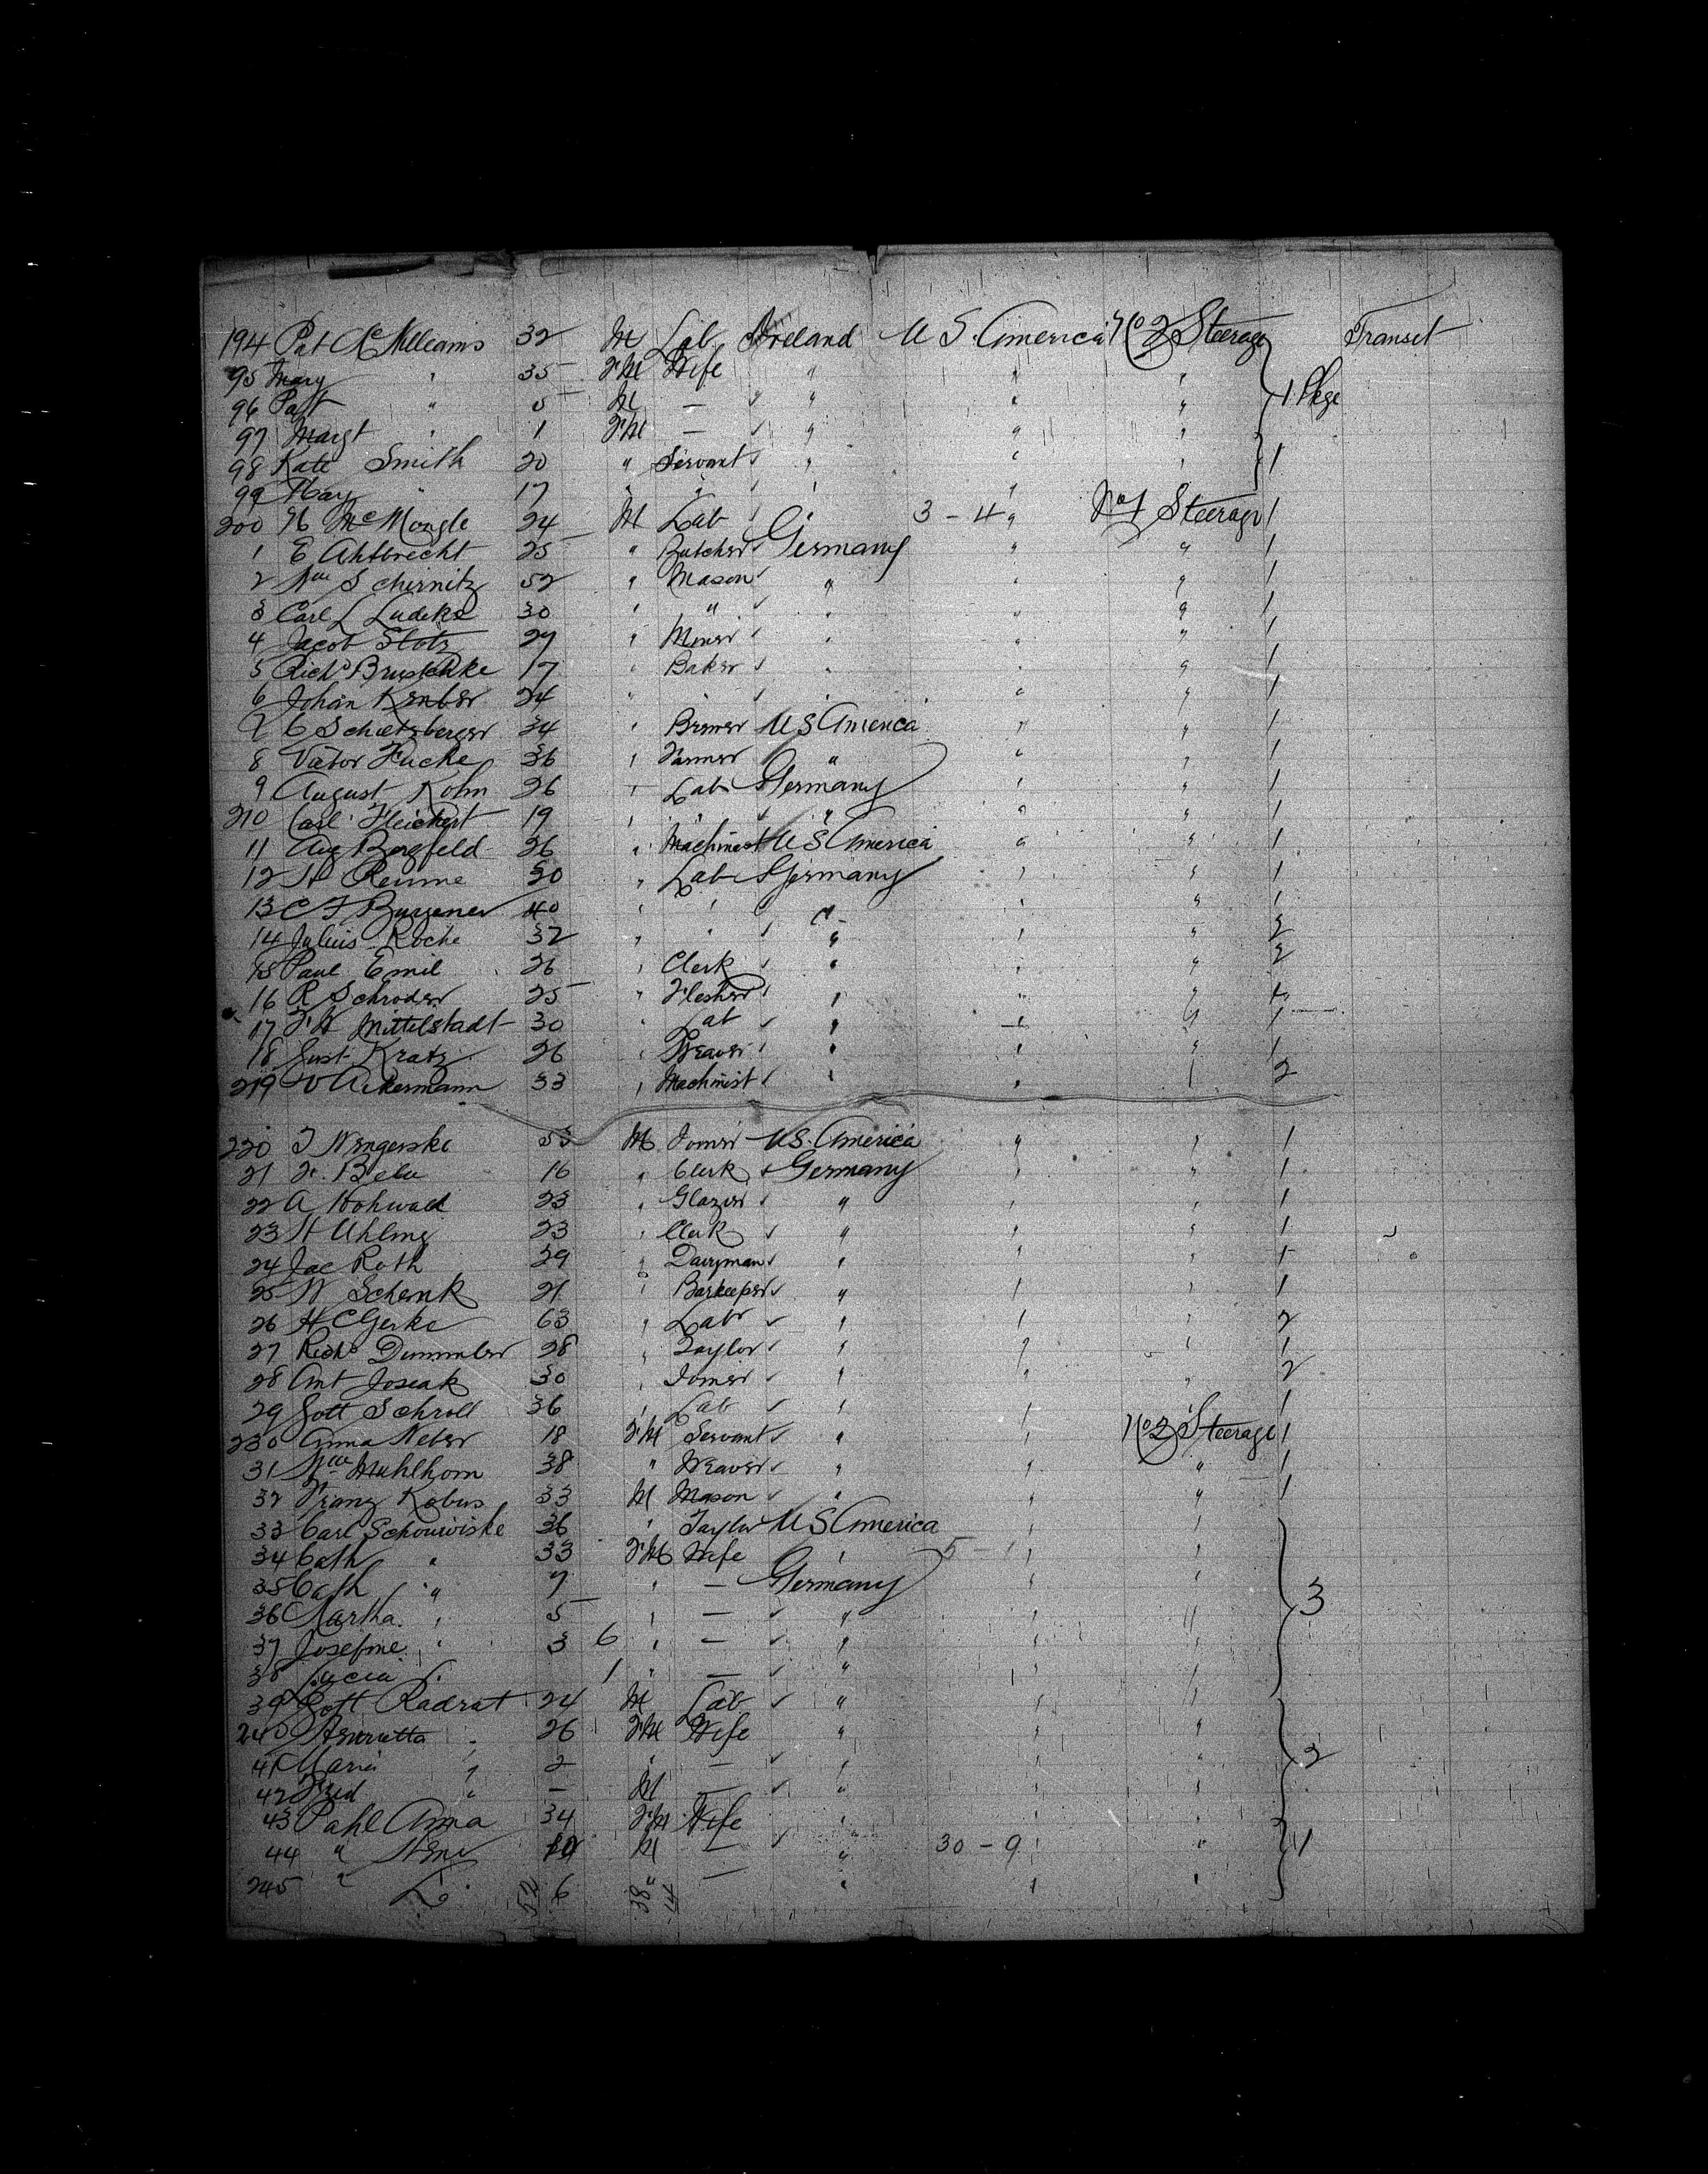 194 Pat McWilleams 32 M Lab Ireland U S. America No 2 Steerage Transet
95 Mary " 35 FM Wife " " "
96 Patt " 5 M — " " " 1 Pkge
97 Margt " 1 FM — " " "
98 Kate Smith 20 " Servant " " " 1
99 Mary " 17 " " " "
200 N McMongle 24 M Lab " 3 - 4 " No 1 Steerage 1
1 E Ahlbrecht 25 " Butcher Germany " " 1
2 Wm Schirnitz 52 " Mason " " " 1
3 Carl L Ludeke 30 " " " " 1
4 Jacob Stotz 27 " Miner " " " 1
5 Richd Bruschke 17 " Baker " " " 1
6 Johan 24 " " " " " 1
7 C Schietzberger 34 " Brewer U S America " " 1
8 Victor Fuche 36 " Farmer " " " 1
9 August Kohn 26 " Lab Germany " " 1
210 Carl 19 " " " " " 1
11 Aug Bergfeld 26 " Machinest U S America " " 1
12 H Reume 30 " Lab Germany " " 1
13 C F Burgener 40 " " " " " 1
14 Julius Roche 32 " " " " " 2
15 Paul Emil 26 " Clerk " " " 2
16 R Schroder 25 " Flesher " " " 1
17 F W Mittelstadt 30 " Lab " " " 1
18 Gust Kratz 26 " Weaver " " " 1
219 V Ackermann 33 " Machinist " " " 2
220 J Wengerske 53 M Joiner U S. America " " 1
21 Fr. Bela 16 " Clerk Germany " " 1
22 A Hohwald 23 " Glazier " " " 1
23 H Uhlmg 23 " Clerk " " " 1
24 Jac Roth 29 " Dairyman " " " 1
25 W Schenk 21 " Barkeeper " " " 1
26 H C Gerke 63 " Labr " " " 2
27 Richd Dummler 28 " Taylor " " " 1
28 Ant Joseak 30 " Joiner " " " 2
29 Gott Schroll 36 " Lab " " 1
230 Anna Weber 18 FM Servant " " No 2 Steerage 1
31 Wm Muhlhorn 38 " Weaver " " " 1
32 Franz Kobus 33 M Mason " " " 1
33 Carl Schouwiske 36 " Taylor U S America " "
34 Cath " 33 FM Wife " 5 - 1 " "
35 Cath " 7 " — Germany " "
36 Martha " 5 " — " " " 3
37 Josefine " 3 6 " — " " "
38 Lucia " 1 " — " " "
39 Gott Radrat 24 M Lab " " "
240 Henrietta " 26 FM Wife " " "
41 Maria " 2 " — " " " 2
42 Fred " — M — " " "
43 Pahl Anna 34 FM Wife " " "
44 " M — " 30 - 9 " " 1
245 " L. 6 " — " " "
52 38 14